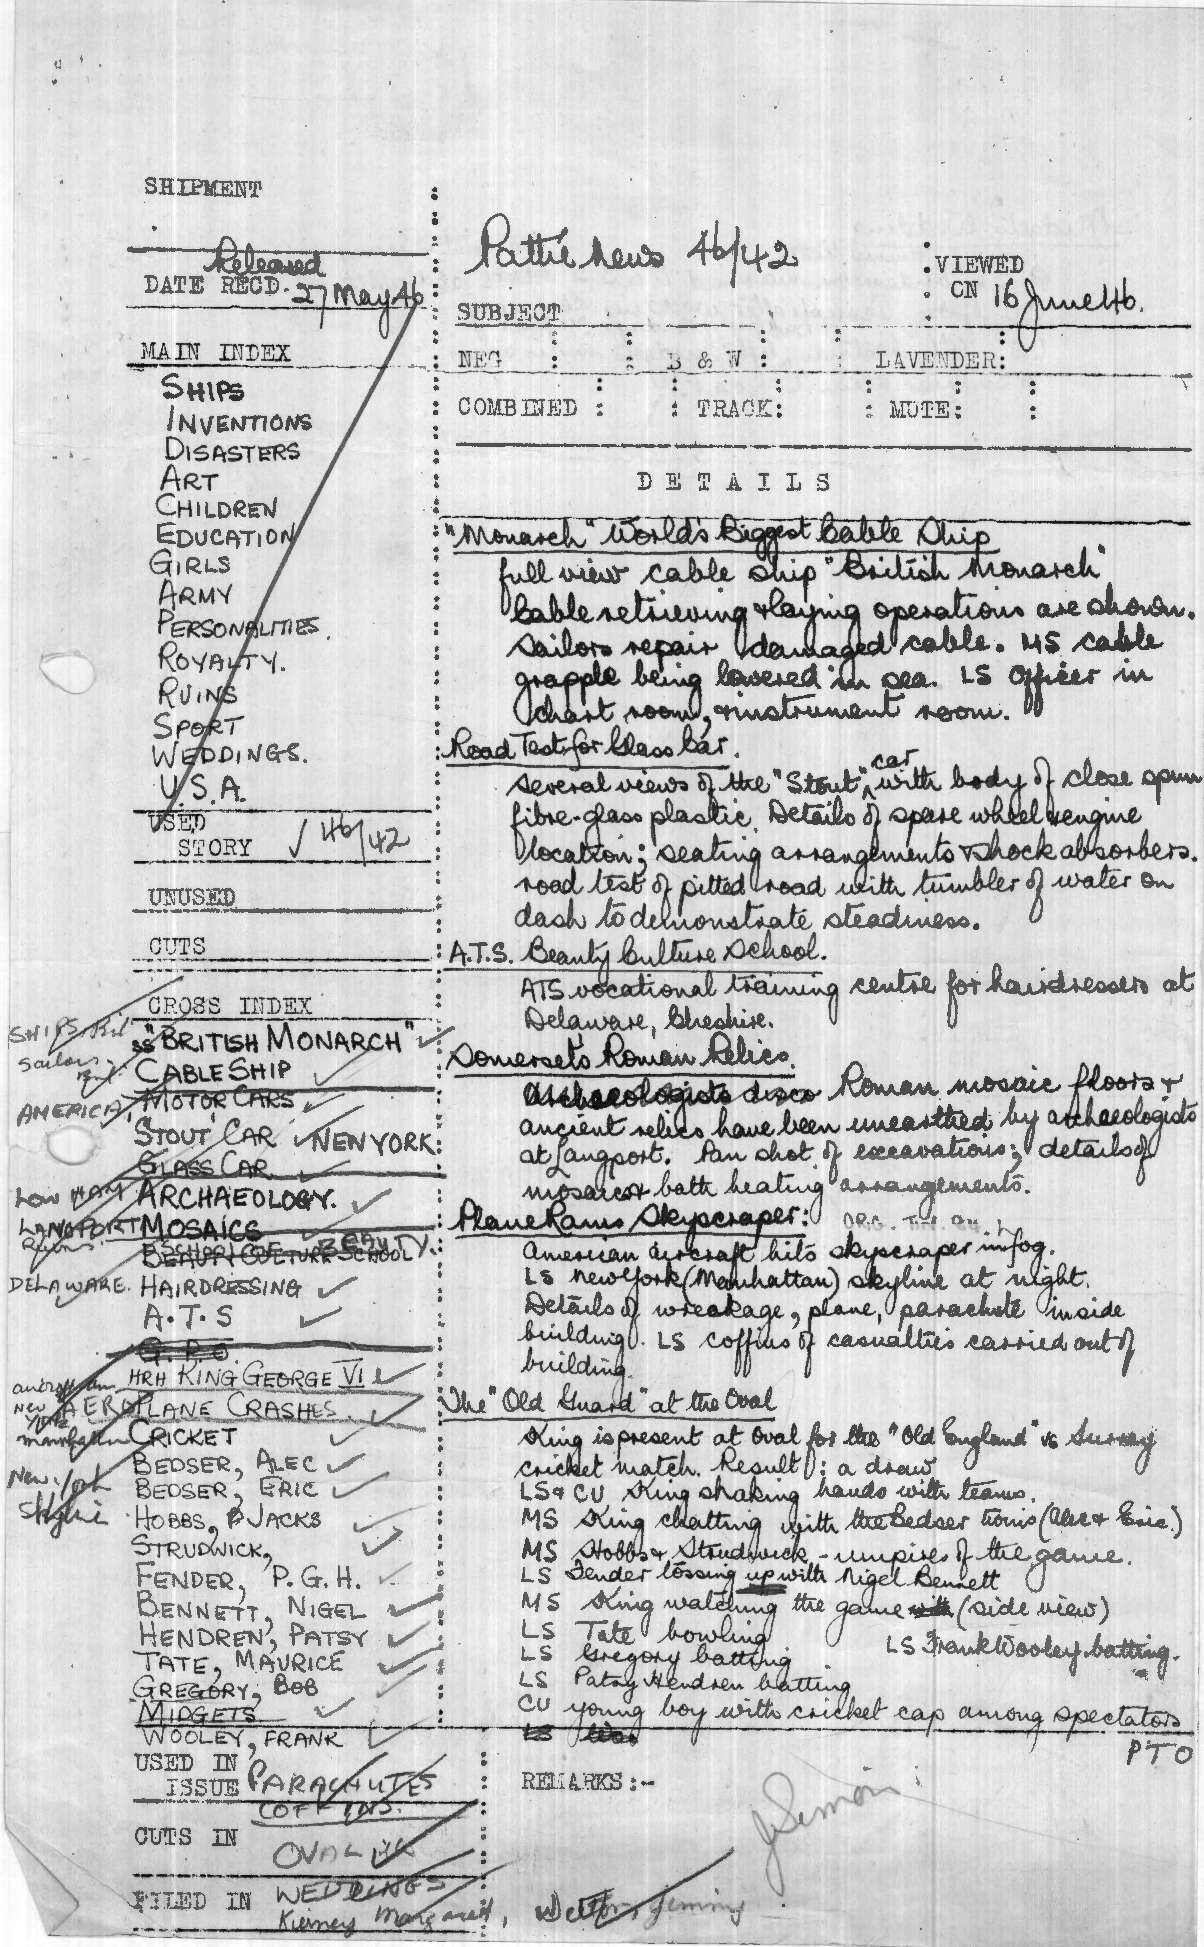 SHIPMENT
Released
DATE RECD. 27 May 46
Pathe News 46/42
VIEWED
ON 16 June 46.
SUBJECT
NEG : : B & W : : LAVENDER:
COMBINED : : TRACK: : MUTE: :
MAIN INDEX
SHIPS
INVENTIONS
DISASTERS
ART
CHILDREN
EDUCATION
GIRLS
ARMY
PERSONALITIES.
ROYALTY.
RUINS
SPORT
WEDDINGS.
U.S.A.
USED
STORY √ 46/42
UNUSED
CUTS
CROSS INDEX
SHIPS
Sailors
SS "BRITISH MONARCH"
CABLE SHIP
AMERICA, MOTOR CARS
STOUT CAR NEW YORK
GLASS CAR
LOW HAM ARCHAEOLOGY.
LANGPORT MOSAICS
Ruins.
BEAUTY CULTURE SCHOOL BEAUTY.
DELAWARE. HAIRDRESSING
A.T.S
G.P.O.
HRH KING GEORGE VI
AEROPLANE CRASHES.
New York
Manhattan CRICKET
New York
Skyline
BEDSER, ALEC
BEDSER, ERIC
HOBBS, JACKS
STRUDWICK,
FENDER, P.G.H.
BENNETT, NIGEL
HENDREN, PATSY
TATE, MAURICE
GREGORY, BOB
MIDGETS
WOOLEY, FRANK
USED IN
ISSUE PARACHUTES
COFFINS.
CUTS IN
OVAL
FILED IN WEDDINGS
Kierney Margaret, Jimmy
DETAILS
"Monarch" World's Biggest Cable Ship
full view cable ship "British Monarch"
Cable retrieving & laying operations are shown.
Sailors repair damaged cable. MS cable
grapple being lowered in sea. LS Officer in
chart room, & instrument room.
Road Test for Glass Car.
Several views of the "Stout" car with body of close spun
fibre-glass plastic. Details of spare wheel & engine
location; seating arrangements & shock absorbers.
road test of pitted road with tumbler of water on
dash to demonstrate steadiness.
A.T.S. Beauty Culture School.
ATS vocational training centre for hairdressers at
Delaware, Cheshire.
Somerset's Roman Relics.
Archaeologists disco Roman mosaic floors &
ancient relics have been unearthed by archaeologists
at Langport. Pan shot of excavations; details of
mosaics & bath heating arrangements.
Plane Rams Skyscraper:
American aircraft hits skyscraper in fog.
LS New York (Manhattan) skyline at night.
Details of wreakage, plane, parachute inside
building. LS coffins of casualties carried out of
building.
The "Old Guard" at the Oval
King is present at Oval for the "Old England" vs Surrey
cricket match. Result: a draw
LS & CU King shaking hands with teams.
MS King chatting with the Bedser twins (Alec & Eric.)
MS Hobbs & Strudwick - umpires of the game.
LS Fender tossing up with Nigel Bennett
MS King watching the game with (side view)
LS Tate bowling LS Frank Wooley batting.
LS Gregory batting
LS Patsy Hendren batting
CU young boy with cricket cap among spectators
PTO
REMARKS:-
J Simon